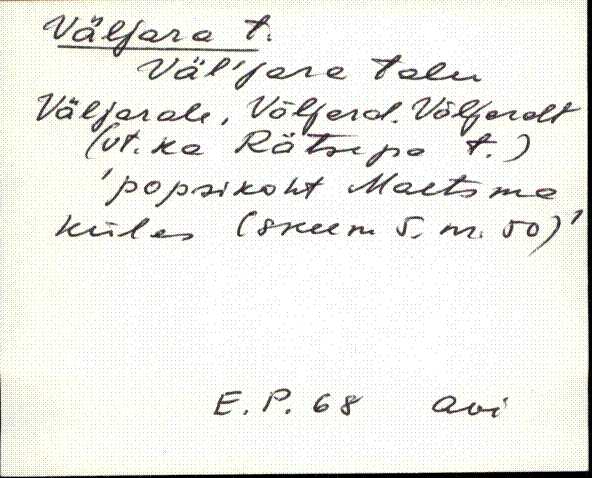 Väljara t.
Väl'jara talu
Väljarale, Väljarad. Väljaradt
(vt. ka Rätsepa t.)
'popsikoht Maetsma
külas (skeem 5. nr. 50)'
E.P. 68 Avi